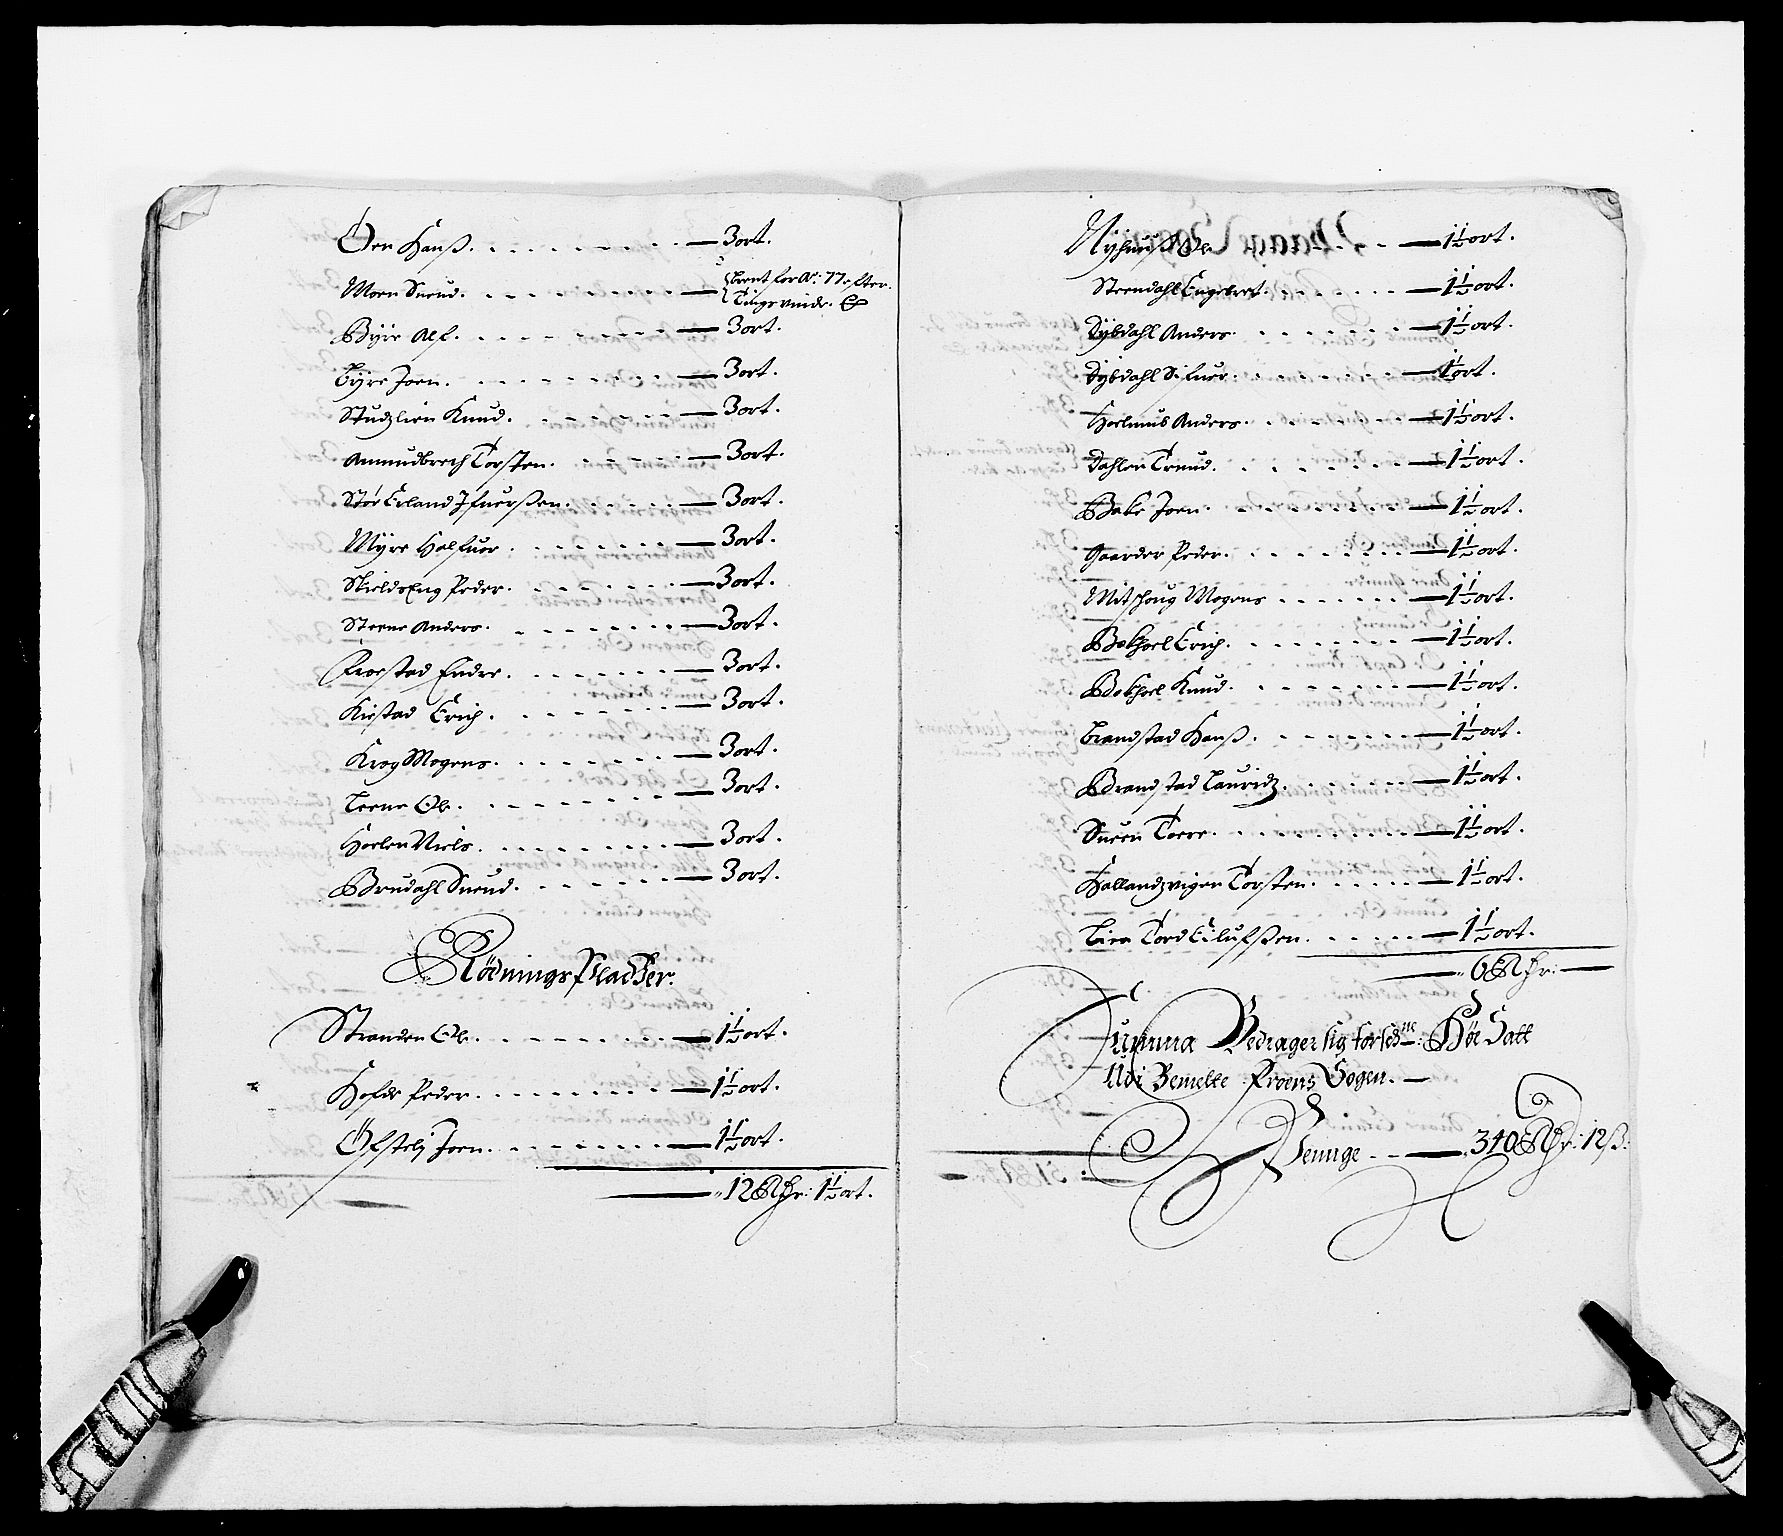 Øen Hanß. — 3 ort.
Moen Sneud. — brent for Aō: 77. efter
Tings vinde. &
Byre Alf. — 3 ort.
Byre Joen. — 3 ort.
Studzlien Knud. — 3 ort.
Amundbrech Torsten. — 3 ort.
Stor Erland Jfuerßen. — 3 ort.
Myre Halfuor. — 3 ort.
SkieldsEng Peder. — 3 ort.
Steene Anders. — 3 ort.
Froestad Endre. — 3 ort.
Kirstad Erich. — 3 ort.
Krog Mogens. — 3 ort.
Leene Ole. — 3 ort.
Hoelen Niels. — 3 ort.
Brudahl Sneud. — 3 ort.
Rödnings Pladser.
Stranden Ole. — 1½ ort.
Hofde Peder. — 1½ ort.
Öfstelj Joen. — 1½ ort.
— 12 Rdr: 1½ ort.
Nyhuuß Ole — 1½ ort.
Steendahl Engebret. — 1½ ort.
Dybdahl Anders. — 1½ ort.
Dybdahl Sifuer. — 1½ ort.
Hoelmus Anders. — 1½ ort.
Dahlen Trond. — 1½ ort.
Bake Joen. — 1½ ort.
Gaarder Peder. — 1½ ort.
Mitshoug Mogens — 1½ ort.
Bekhoel Erich. — 1½ ort.
Bekhoel Knud. — 1½ ort.
Brandstad Hanß. — 1½ ort.
Brandstad Lauridz. — 1½ ort.
Sneen Toere. — 1½ ort.
Hallandzvigen Torsten. — 1½ ort.
Lien Tord Elufßen. — 1½ ort.
— 6 Rdr: —
Summa Bedrager sig forsch^ne: Höe Satt
Udi Bemelte Froens Sogen. —
Penge — 340 Rdr: 12 ß: